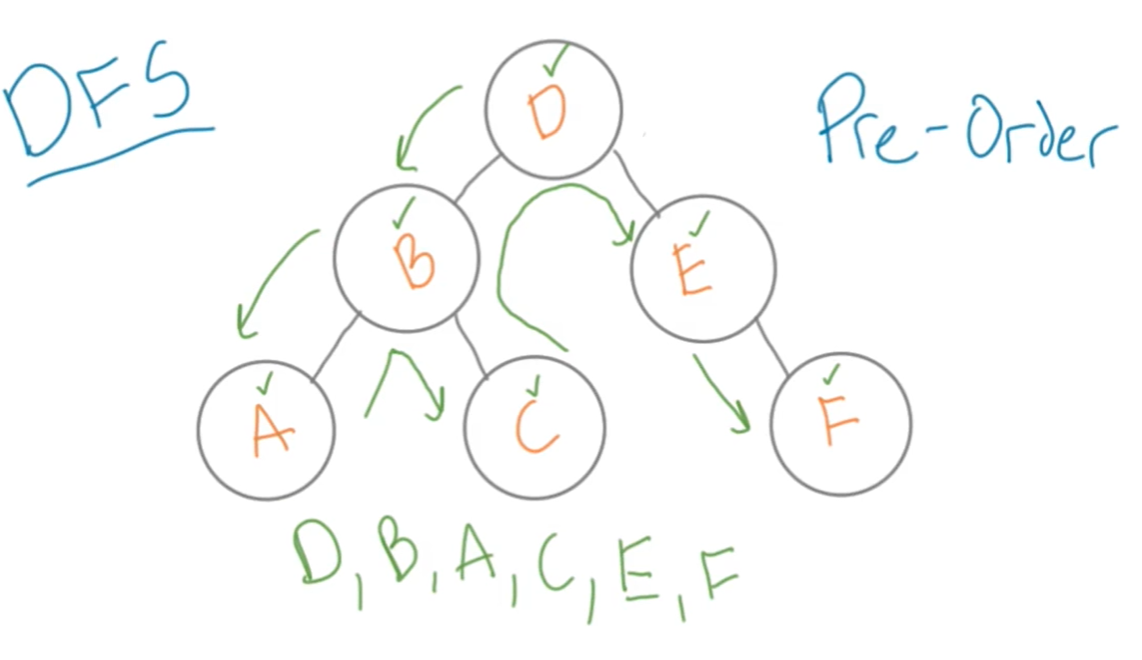 DFS
Pre-Order
D
B
E
A
C
F
D, B, A, C, E, F